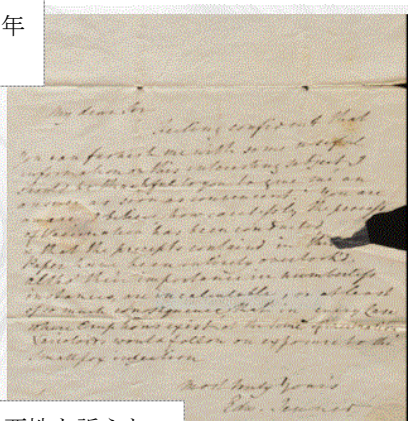 年
My dear Sir
Feeling confident that
you can furnish me with some useful
information on this interesting subject I
should be thankful to you to give me an
answer as soon as convenient. You are
aware I believe how carelessly the process
of Vaccination has been conducted,
& that the precepts contained in this
Paper have been entirely overlooked.
altho' their importance in numberless
instances, are incalculable, or at least
of so much consequence, that in every Case
where Eruptions exist at the time of Vaccination
would follow on exposure to the
Smallpox infection
most truly Yours
Edw. Jenner